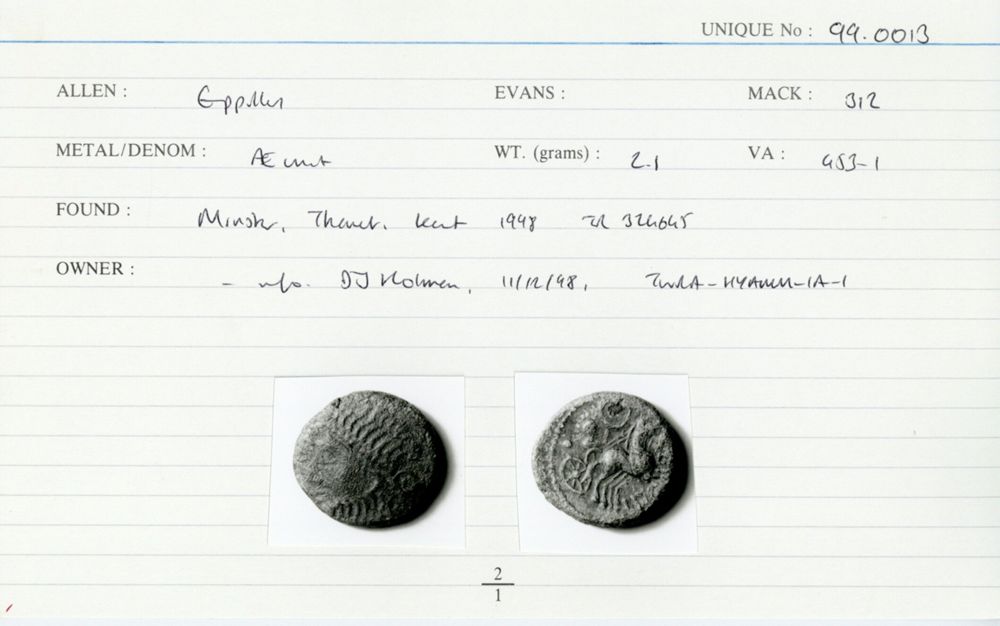 UNIQUE No : 99.0013
ALLEN : Eppillus EVANS : MACK : 312
METAL/DENOM : Æ unit WT. (grams) : 2.1 VA : 453-1
FOUND : Minster, Thanet, Kent 1998 TR 324645
OWNER : - info. DJ Holman, 11/12/98, -IA-1
2
1